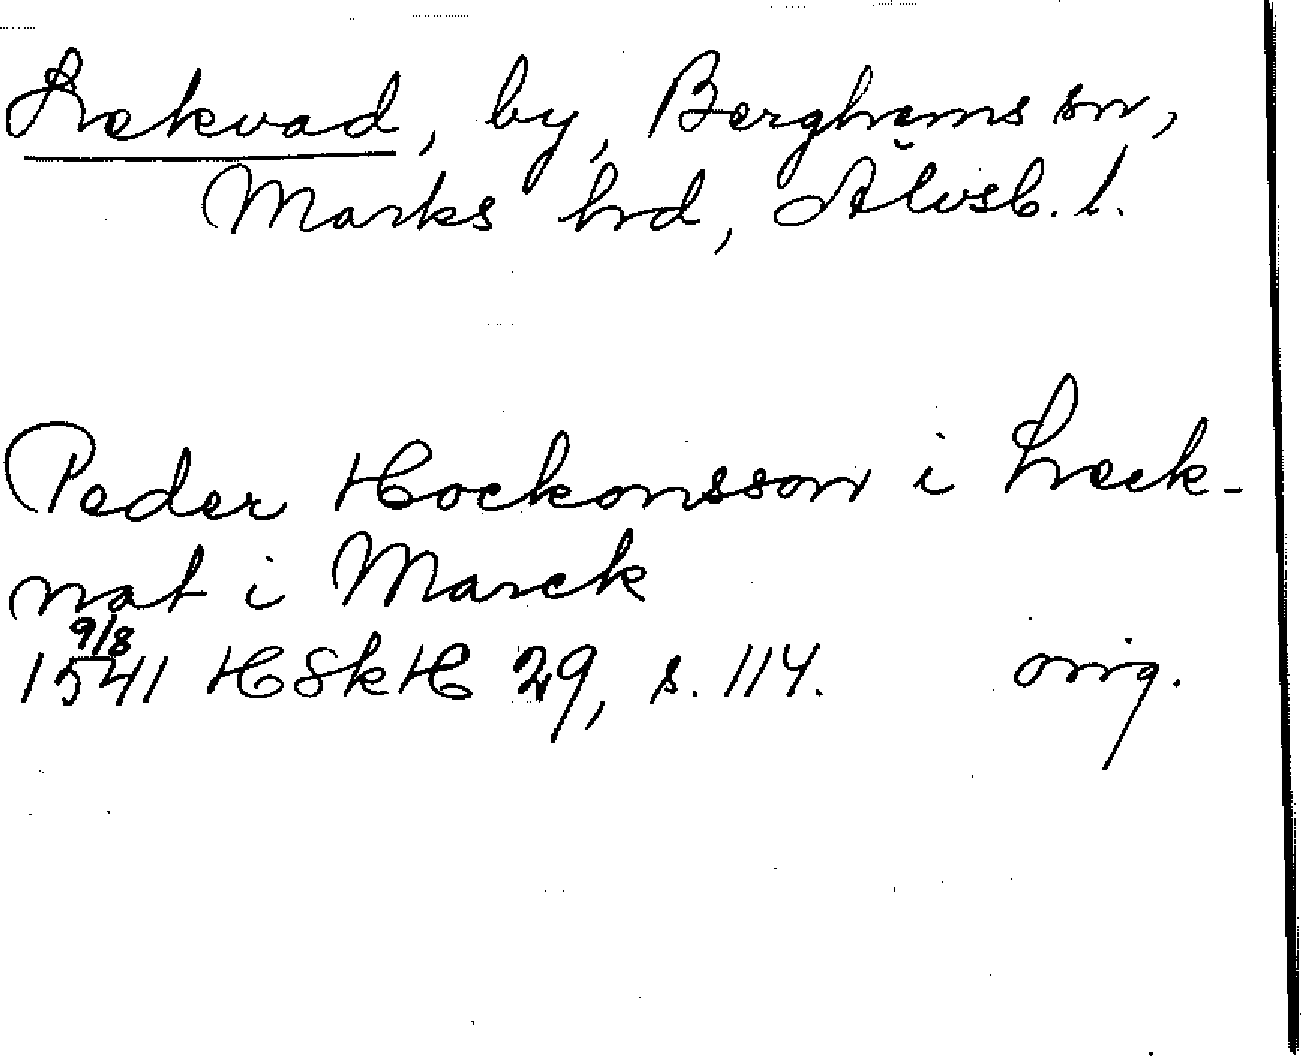 Lekvad, by, Berghems sn,
Marks hrd, Älvsb. l.
Peder Hockonsson i Leck-
nat i Marck
9/8
1541 HSkH 29, s. 114. orig.